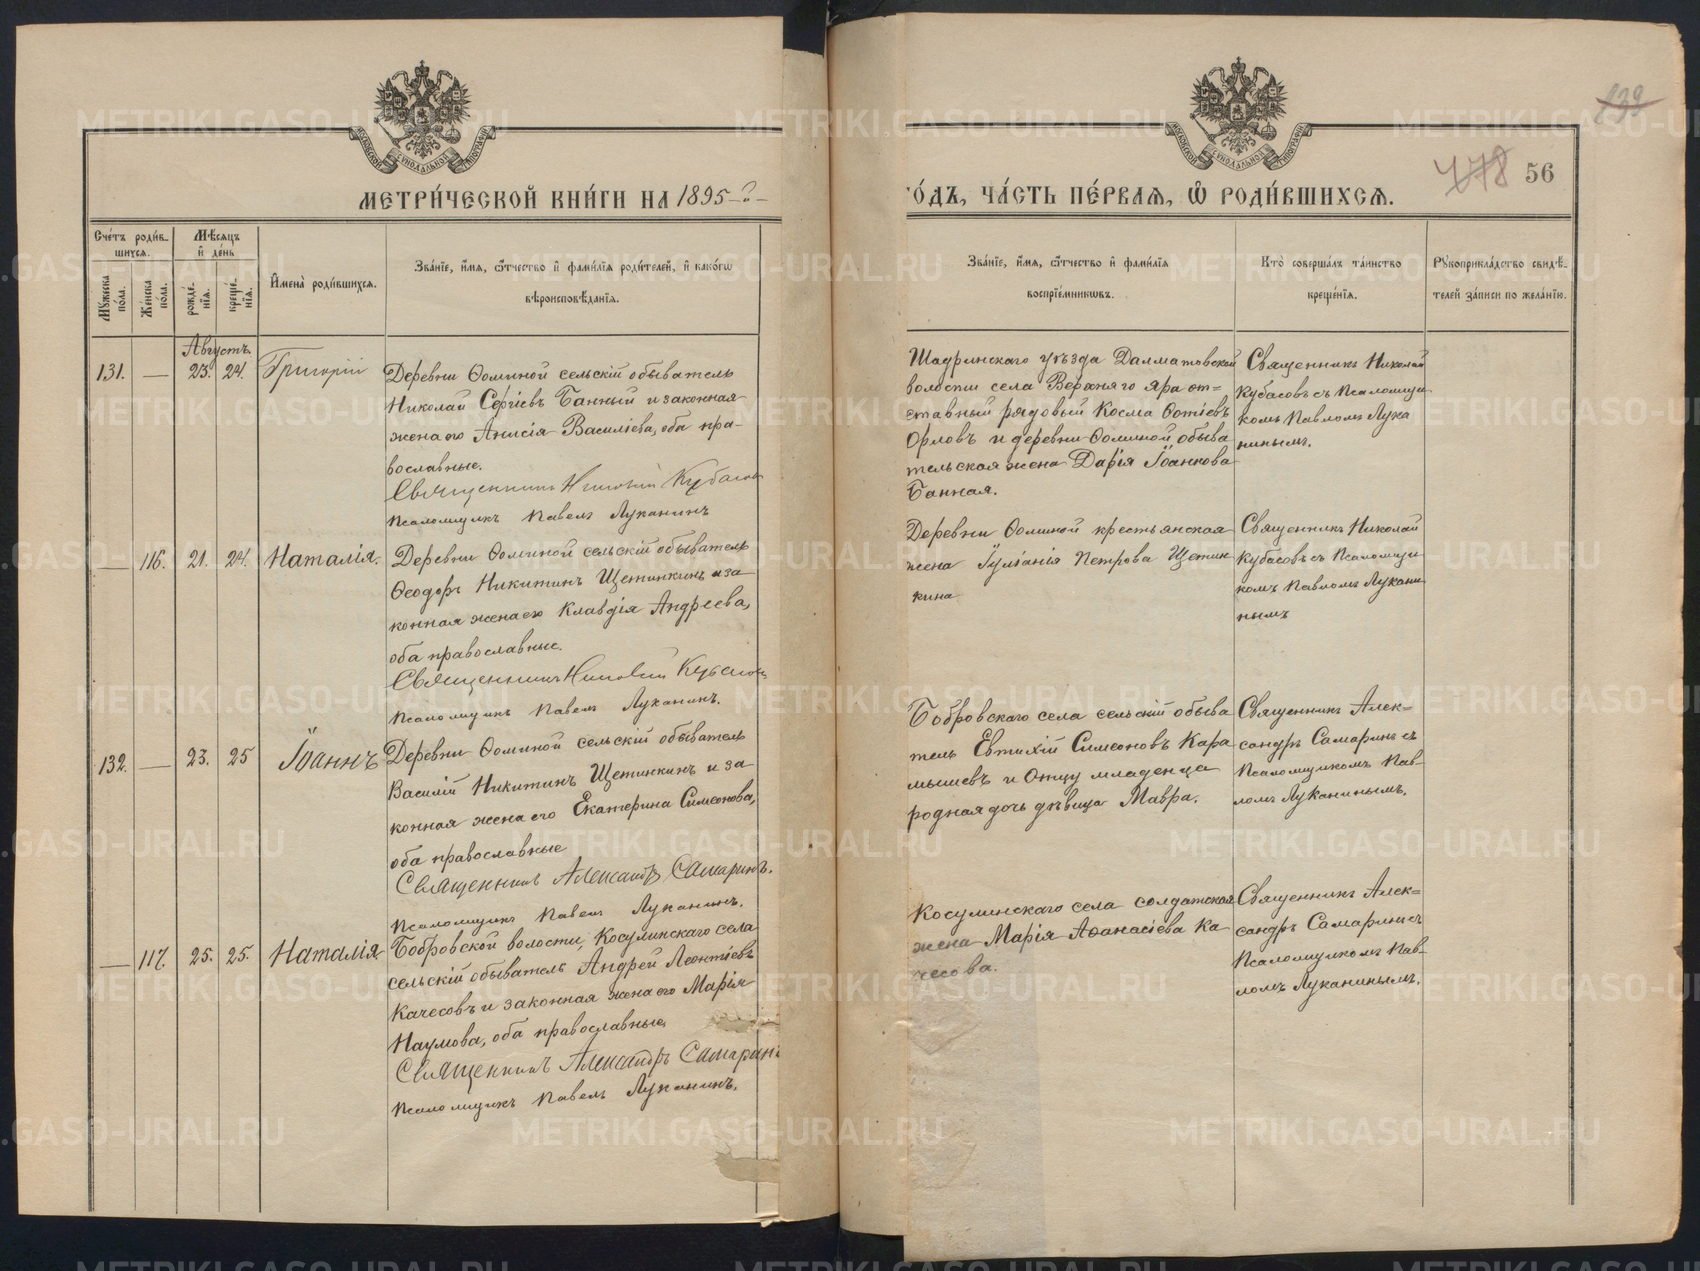 139
478 56
МЕТРИ́ЧЕСКОЙ КНИ́ГИ НА 1895
О́ДЪ, ЧА́СТЬ ПЕ́РВАЯ, Ѡ҆ РОДИ́ВШИХСЯ.
Сче́тъ роди́в-
шихся.
Мѣ́сяцъ
и҆ де́нь
Мꙋ́жеска по́ла.
Же́нска по́ла.
рожде́-
нїя.
креще́-
нїя.
И҆мена̀ роди́вшихся.
Зва́нїе, и҆́мя, ѻ҆́тчество и҆ фами́лїя роди́телей, и҆ како́гѡ
вѣроисповѣ́данїя.
Зва́нїе, и҆́мя, ѻ҆́тчество и҆ фами́лїя
воспрїе́мникѡвъ.
Кто̀ соверша́лъ та́инство
креще́нїя.
Рꙋкоприкла́дство свидѣ́-
телей за́писи по жела́нїю.
Августъ.
131. — 23. 24. Григорій
Деревни Ѳоминой сельскій обыватель
Николай Сергіевъ Банный и законная
жена его Анисія Василіева, оба пра-
вославные.
Священникъ Николай Кубасовъ
Псаломщикъ Павелъ Луканинъ
Шадринскаго уѣзда Далматовской
волости села Верхняго Яра от=
ставный рядовый Косма Ѳотіевъ
Орловъ и деревни Ѳоминой обыва
тельская жена Дарія Іоаннова
Банная.
Священникъ Николай
Кубасовъ съ Псаломщи
комъ Павломъ Лука
нинымъ.
— 116. 21. 24. Наталія.
Деревни Ѳоминой сельскій обыватель
Ѳеодоръ Никитинъ Щетинкинъ и за
конная жена его Клавдія Андреева,
оба православные.
Священникъ Николай Кубасовъ
Псаломщикъ Павелъ Луканинъ.
Деревни Ѳоминой крестьянская
жена Іуліанія Петрова Щетин
кина
Священникъ Николай
Кубасовъ съ Псаломщи
комъ Павломъ Лукани
нымъ
132. — 23. 25 Іоаннъ
Деревни Ѳоминой сельскій обыватель
Василій Никитинъ Щетинкинъ и за
конная жена его Екатерина Симеонова,
оба православные
Священникъ Александръ Самаринъ.
Псаломщикъ Павелъ Луканинъ.
Бобровскаго села сельскій обыва
тель Евтихій Симеоновъ Кара
мышевъ и Отцу младенца
родная дочь дѣвица Мавра.
Священникъ Алек=
сандръ Самаринъ съ
Псаломщикомъ Пав-
ломъ Луканинымъ.
— 117. 25. 25. Наталія
Бобровской волости, Косулинскаго села
сельскій обыватель Андрей Леонтіевъ
Качесовъ и законная жена его Марія
Наумова, оба православные
Священникъ Александръ Самаринъ
Псаломщикъ Павелъ Луканинъ.
Косулинскаго села солдатская
жена Марія Аѳанасіева Ка
чесова.
Священникъ Алек=
сандръ Самаринъ съ
Псаломщикомъ Пав-
ломъ Луканинымъ.